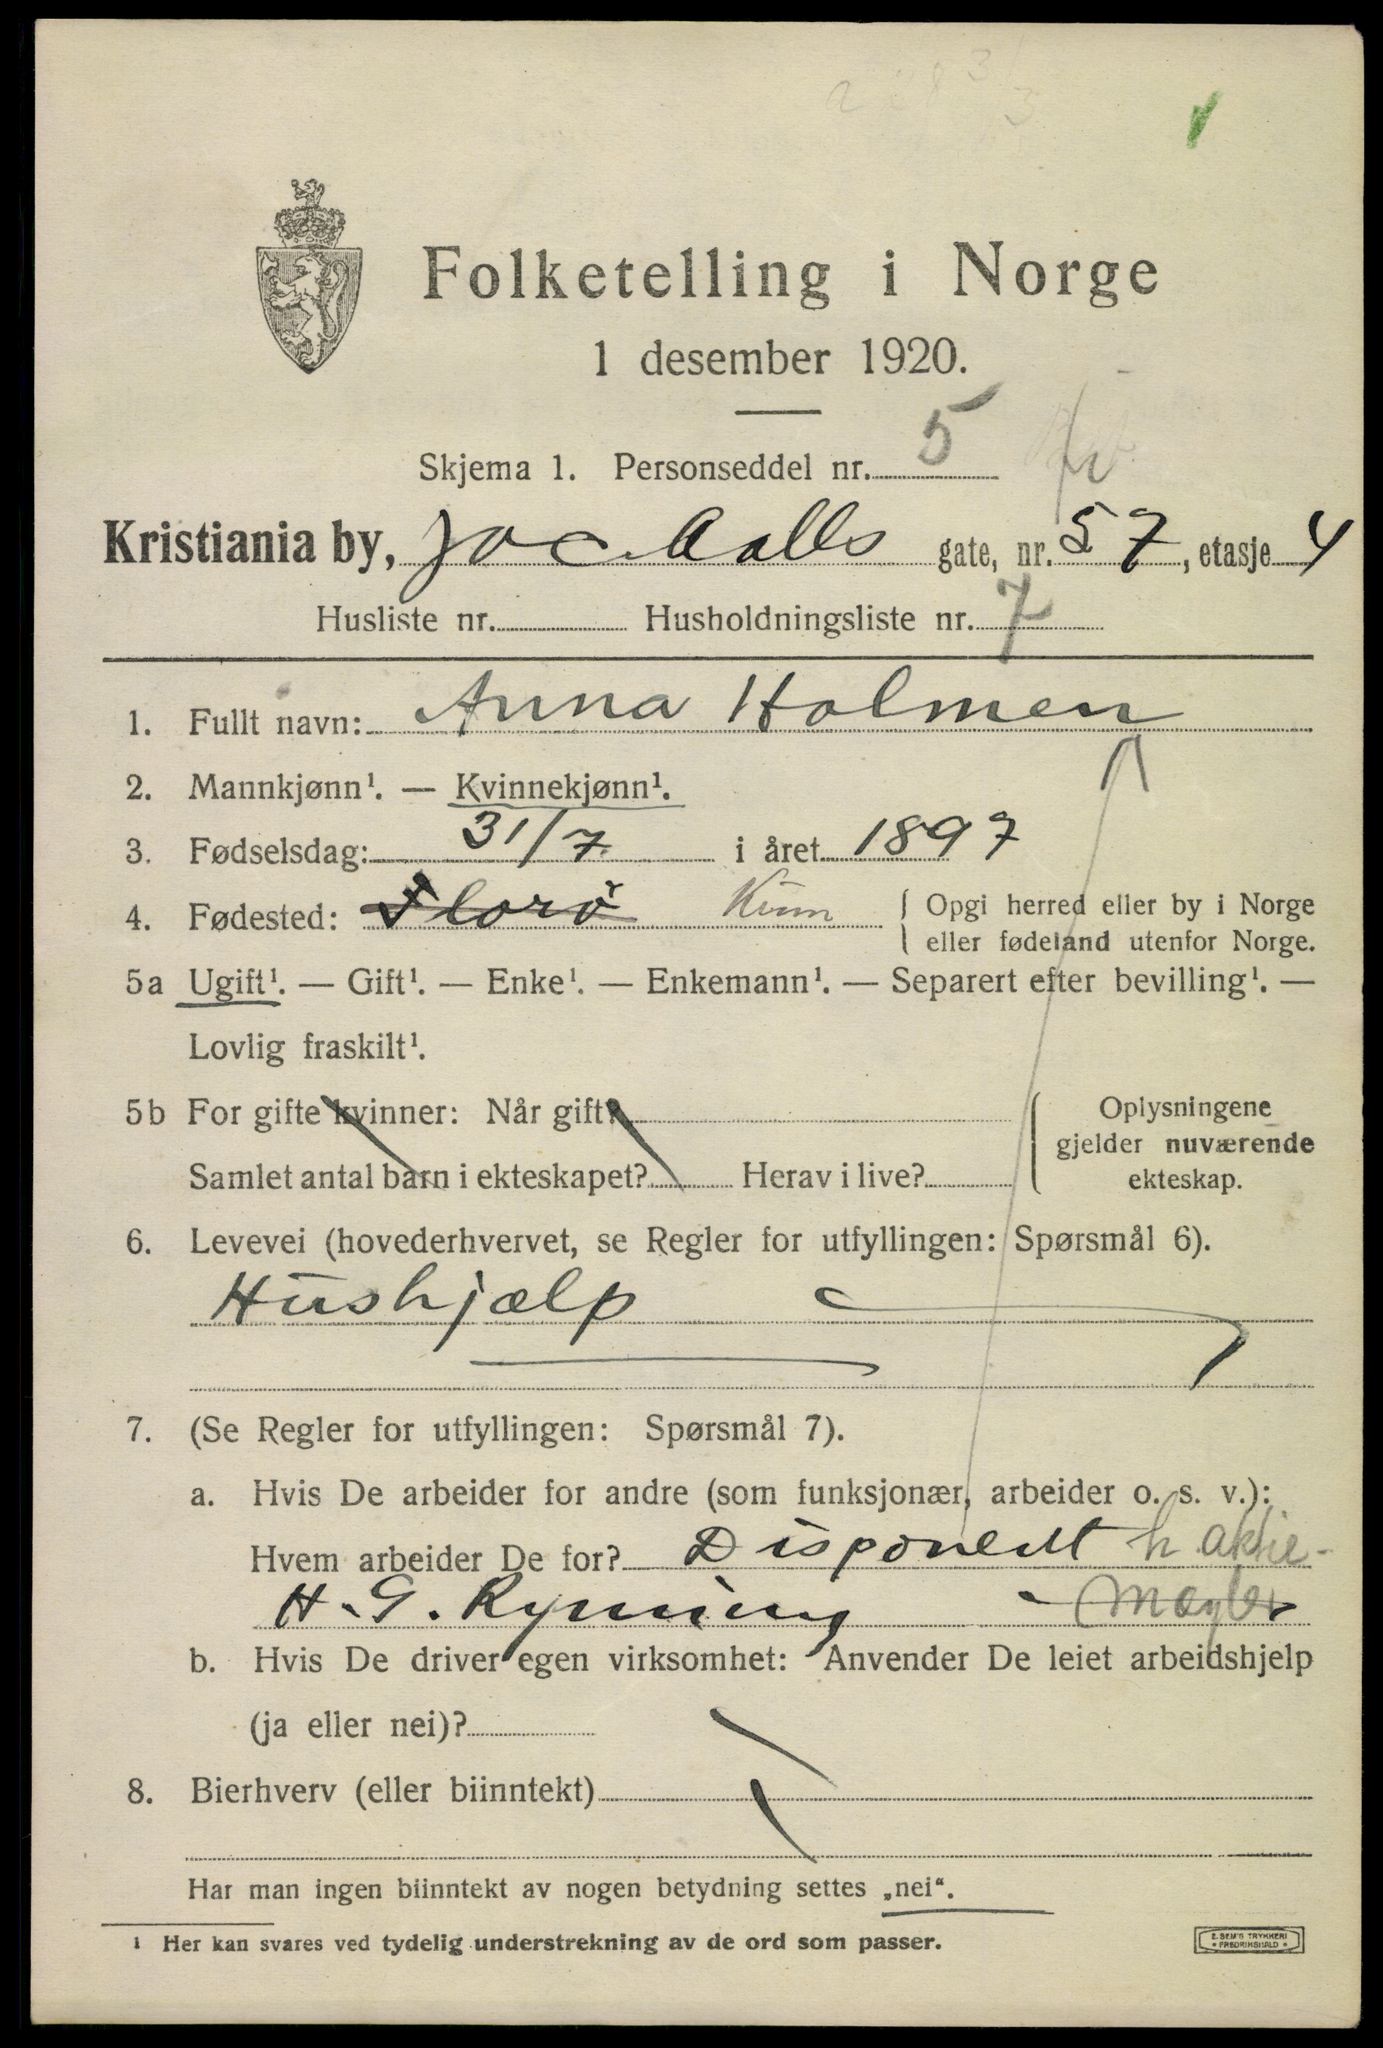 Folketelling i Norge
1 desember 1920.
Skjema 1. Personseddel nr. 5
Kristiania by, Jac. Aalls gate, nr. 57, etasje 4
Husliste nr. Husholdningsliste nr. 7
1. Fullt navn: Anna Holmen
2. Mannkjønn¹. — Kvinnekjønn¹.
3. Fødselsdag: 31/7 i året 1897
4. Fødested: Florø Kinn { Opgi herred eller by i Norge
eller fødeland utenfor Norge.
5a Ugift¹. — Gift¹. — Enke¹. — Enkemann¹. — Separert efter bevilling¹. —
Lovlig fraskilt¹.
5b For gifte kvinner: Når gift?
Samlet antal barn i ekteskapet? Herav i live?
Oplysningene
gjelder nuværende
ekteskap.
6. Levevei (hovederhvervet, se Regler for utfyllingen: Spørsmål 6).
Hushjælp
7. (Se Regler for utfyllingen: Spørsmål 7).
a. Hvis De arbeider for andre (som funksjonær, arbeider o. s. v.):
Hvem arbeider De for? Disponent h aktie-
H. G. Rynning mægler
b. Hvis De driver egen virksomhet: Anvender De leiet arbeidshjelp
(ja eller nei)?
8. Bierhverv (eller biinntekt)
Har man ingen biinntekt av nogen betydning settes „nei“.
¹ Her kan svares ved tydelig understrekning av de ord som passer.
E. SEM'S TRYKKERI
• FREDRIKSHALD •